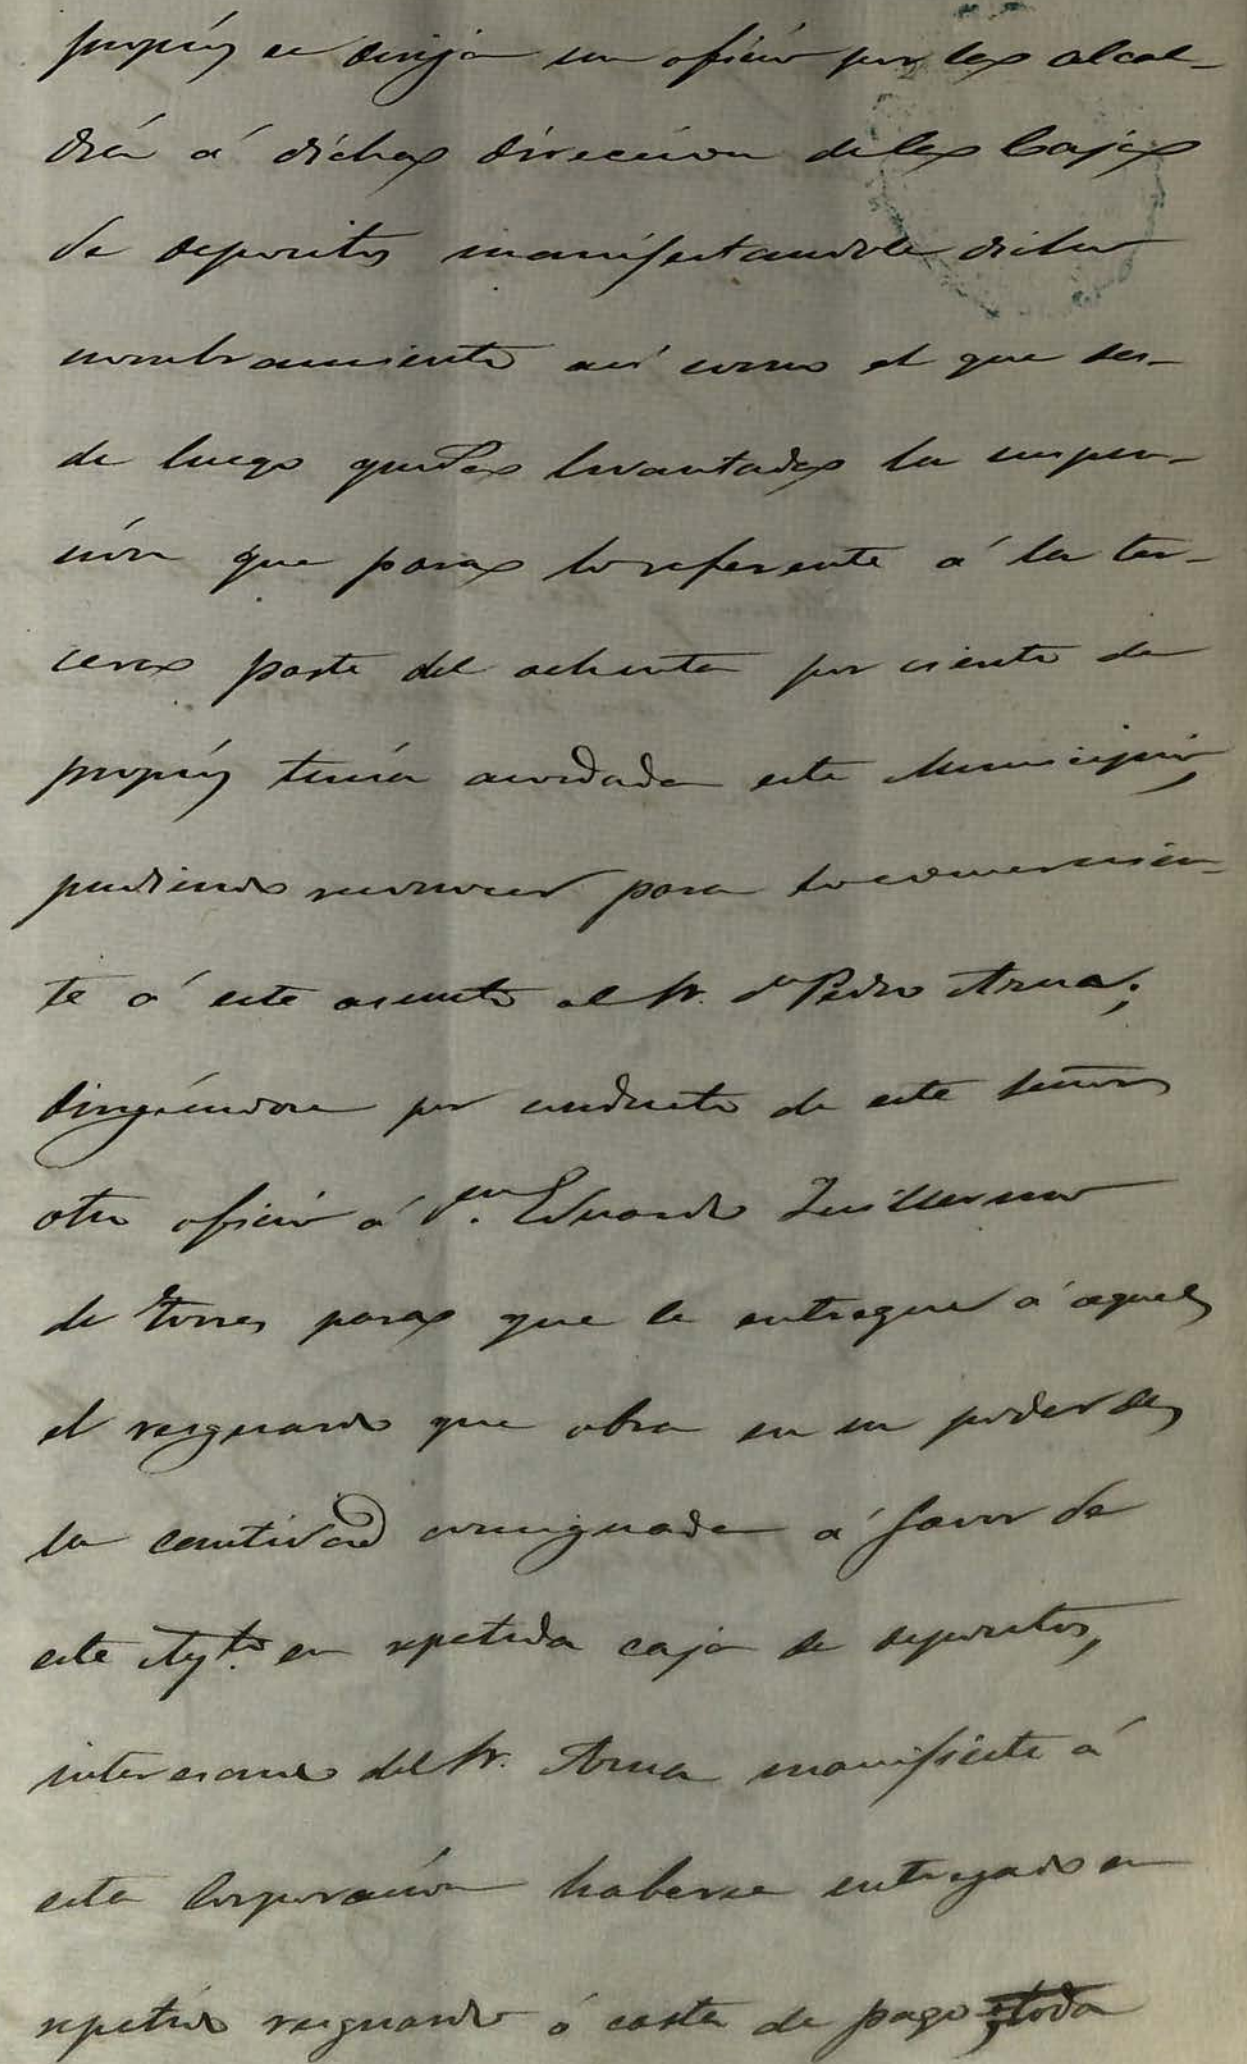 propios se dirija un oficio por la alcal-
día á dicha dirección de la Caja
de depositos manifestandole dicho
nombramiento así como el que des-
de luego queda levantada la suspen-
sión que para lo referente á la ter-
cera parte del ochenta por ciento de
propios tenía acordada este Municipio,
pudiendo reconocer para lo concernien-
te á este asunto al Sr. dn Pedro Arma;
dirigiendose por conducto de este señor
otro oficio á Dn. Eduardo Guillermo
de Torres para que le entregue á aquel
el resguardo que obra en su poder de
la cantidad consignada á favor de
este Aytto. en repetida caja de depositos,
interesando del Sr. Arma manifieste á
esta Corporación haberse entregado en
repetido resguardo ó carta de pago; toda